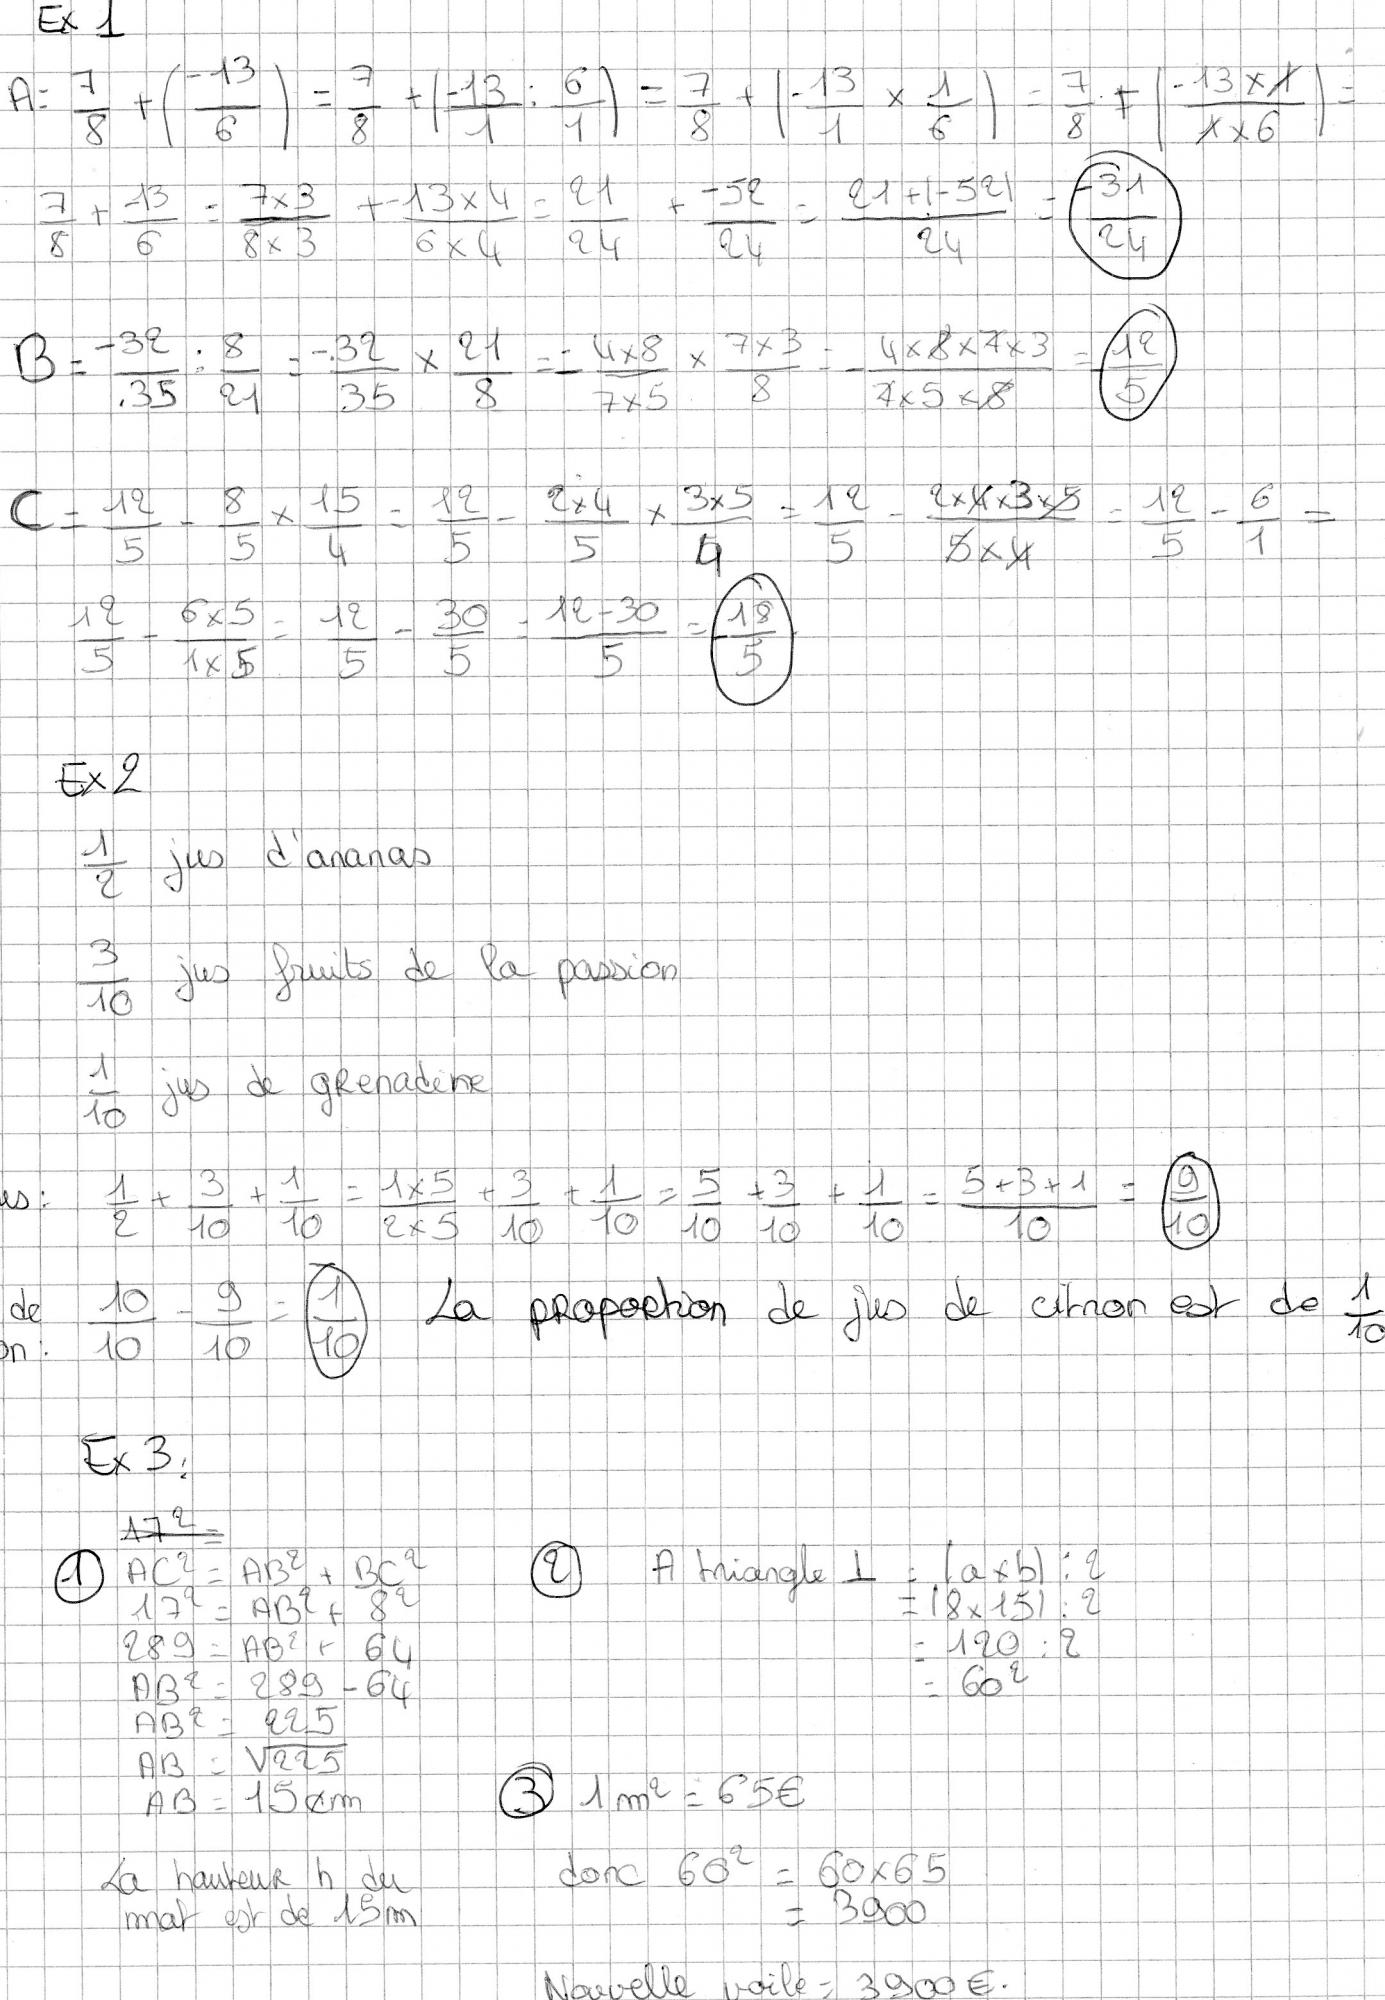 Ex 1
A = 7/8 + (-13/6) = 7/8 + (-13/1 : 6/1) = 7/8 + (-13/1 × 1/6) = 7/8 + (-13×1/1×6) =
7/8 + -13/6 = 7×3/8×3 + -13×4/6×4 = 21/24 + -52/24 = 21+(-52)/24 = -31/24
B = -32/35 : 8/21 = -32/35 × 21/8 = - 4×8/7×5 × 7×3/8 = - 4×8×7×3/7×5×8 = -12/5
C = 12/5 - 8/5 × 15/4 = 12/5 - 2×4/5 × 3×5/4 = 12/5 - 2×4×3×5/5×4 = 12/5 - 6/1 =
12/5 - 6×5/1×5 = 12/5 - 30/5 = 12-30/5 = -18/5
Ex 2
1/2 jus d'ananas
3/10 jus fruits de la passion
1/10 jus de grenadine
us : 1/2 + 3/10 + 1/10 = 1×5/2×5 + 3/10 + 1/10 = 5/10 + 3/10 + 1/10 = 5+3+1/10 = 9/10
de 10/10 - 9/10 = 1/10 La proportion de jus de citron est de 1/10
on :
Ex 3 :
17² =
① AC² = AB² + BC²
17² = AB² + 8²
289 = AB² + 64
AB² = 289 - 64
AB² = 225
AB = √225
AB = 15 m
La hauteur h du
mat est de 15m
② A triangle ⊥ = (a×b) : 2
= (8×15) : 2
= 120 : 2
= 60²
③ 1 m² = 65€
donc 60² = 60×65
= 3900
Nouvelle voile = 3900€.